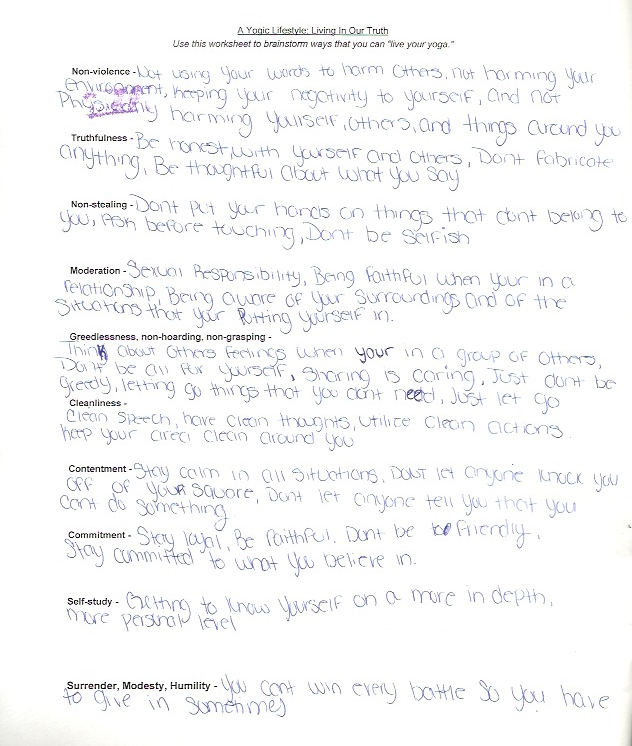 A Yogic Lifestyle: Living In Our Truth
Use this worksheet to brainstorm ways that you can "live your yoga."
Non-violence - Not using your words to harm others, not harming your
environment, keeping your negativity to yourself, and not
Physically harming yourself, others, and things around you
Truthfulness - Be honest with yourself and others, Dont fabricate
anything, Be thoughtful about what you say
Non-stealing - Dont put your hands on things that dont belong to
you, Ask before touching, Dont be selfish
Moderation - Sexual Responsibility, Being faithful when your in a
relationship, Being aware of your surroundings and of the
situations that your putting yourself in.
Greedlessness, non-hoarding, non-grasping -
Think about others feelings when your in a group of others,
Dont be all for yourself, sharing is caring, Just dont be
greedy, letting go things that you dont need, Just let go
Cleanliness -
Clean speech, have clean thoughts, utilize clean actions.
keep your area clean around you
Contentment - Stay calm in all situations, Dont let anyone knock you
off of your square, Dont let anyone tell you that you
cant do something
Commitment - Stay loyal, Be faithful, Dont be friendly,
Stay committed to what you believe in.
Self-study - Getting to know yourself on a more in depth,
more personal level
Surrender, Modesty, Humility - You cant win every battle so you have
to give in sometimes